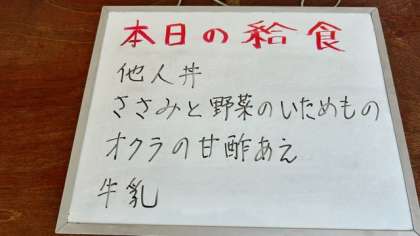 本日の給食
他人丼
ささみと野菜のいためもの
オクラの甘酢あえ
牛乳